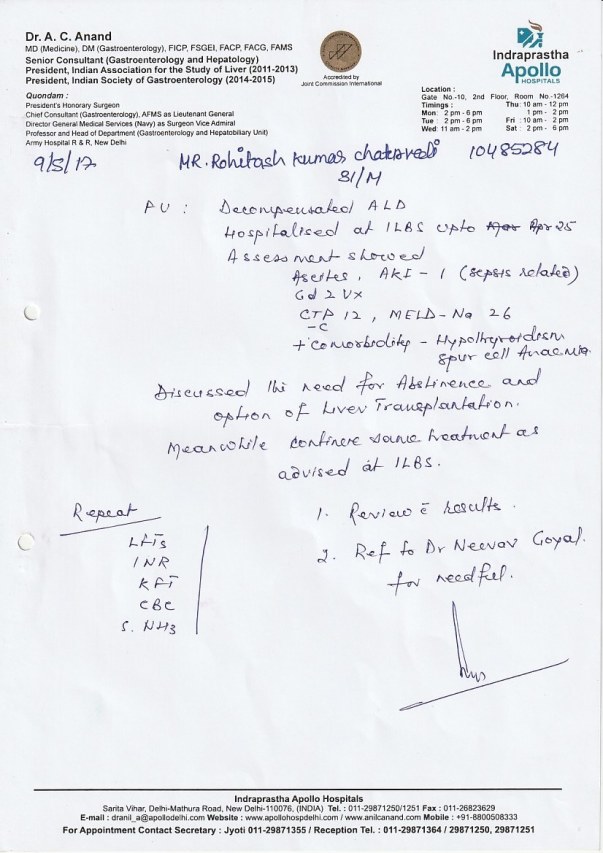 Dr. A. C. Anand
MD (Medicine), DM (Gastroenterology), FICP, FSGEI, FACP, FACG, FAMS
Senior Consultant (Gastroenterology and Hepatology)
President, Indian Association for the Study of Liver (2011-2013)
President, Indian Society of Gastroenterology (2014-2015)
Quondam :
President's Honorary Surgeon
Chief Consultant (Gastroenterology), AFMS as Lieutenant General
Director General Medical Services (Navy) as Surgeon Vice Admiral
Professor and Head of Department (Gastroenterology and Hepatobiliary Unit)
Army Hospital R & R, New Delhi
Accredited by
Joint Commission International
Indraprastha
Apollo
HOSPITALS
Location :
Gate No.-10, 2nd Floor, Room No.-1264
Timings : Thu: 10 am - 12 pm
Mon: 2 pm - 6 pm 1 pm - 2 pm
Tue : 2 pm - 6 pm Fri : 10 am - 2 pm
Wed: 11 am - 2 pm Sat : 2 pm - 6 pm
9/5/17 MR. Rohitash Kumar 10485284
31/M
PU : Decompensated ALD
Hospitalised at ILBS upto Apr 25
Assessment showed
Ascites, AKI - 1 (sepsis related)
Gd 2 Vx
CTP 12, MELD-Na 26
-C
+ Comorbidity - Hypothyroidism
spur cell Anaemia
Discussed the need for Abstinence and
option of Liver Transplantation.
Meanwhile continue same treatment as
advised at ILBS.
Repeat
LFTs
INR
KFT
CBC
S. NH3
1. Review c̄ results.
2. Ref to Dr Neerav Goyal.
for needful.
Indraprastha Apollo Hospitals
Sarita Vihar, Delhi-Mathura Road, New Delhi-110076, (INDIA) Tel. : 011-29871250/1251 Fax : 011-26823629
E-mail : dranil_a@apollodelhi.com Website : www.apollohospdelhi.com / www.anilcanand.com Mobile : +91-8800508333
For Appointment Contact Secretary : Jyoti 011-29871355 / Reception Tel. : 011-29871364 / 29871250, 29871251